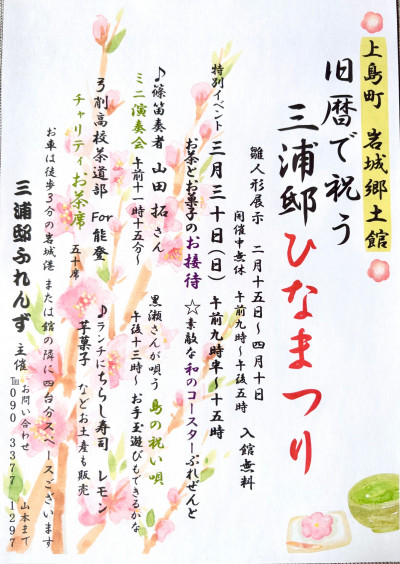 上島町 岩城郷土館
旧暦で祝う
三浦邸ひなまつり
雛人形展示 二月十五日～四月十日
開催中無休 午前九時～午後五時 入館無料
特別イベント 三月三十日(日) 午前九時半～十五時
お茶とお菓子のお接待 ☆素敵な和のコースターぷれぜんと
♪篠笛奏者 山田 拓さん
ミニ演奏会 午前十一時十五分～
黒瀬さんが唄う 島の祝い唄
午後十三時～ お手玉遊びもできるかな
弓削高校茶道部 For 能登
チャリティお茶席 五十席
♪ランチにちらし寿司 レモン
芋菓子 などお土産も販売
お車は徒歩3分の岩城港 または館の隣に四台分スペースございます
三浦邸ふれんず 主催
お問い合わせ 山本まで
℡090 3377 1297